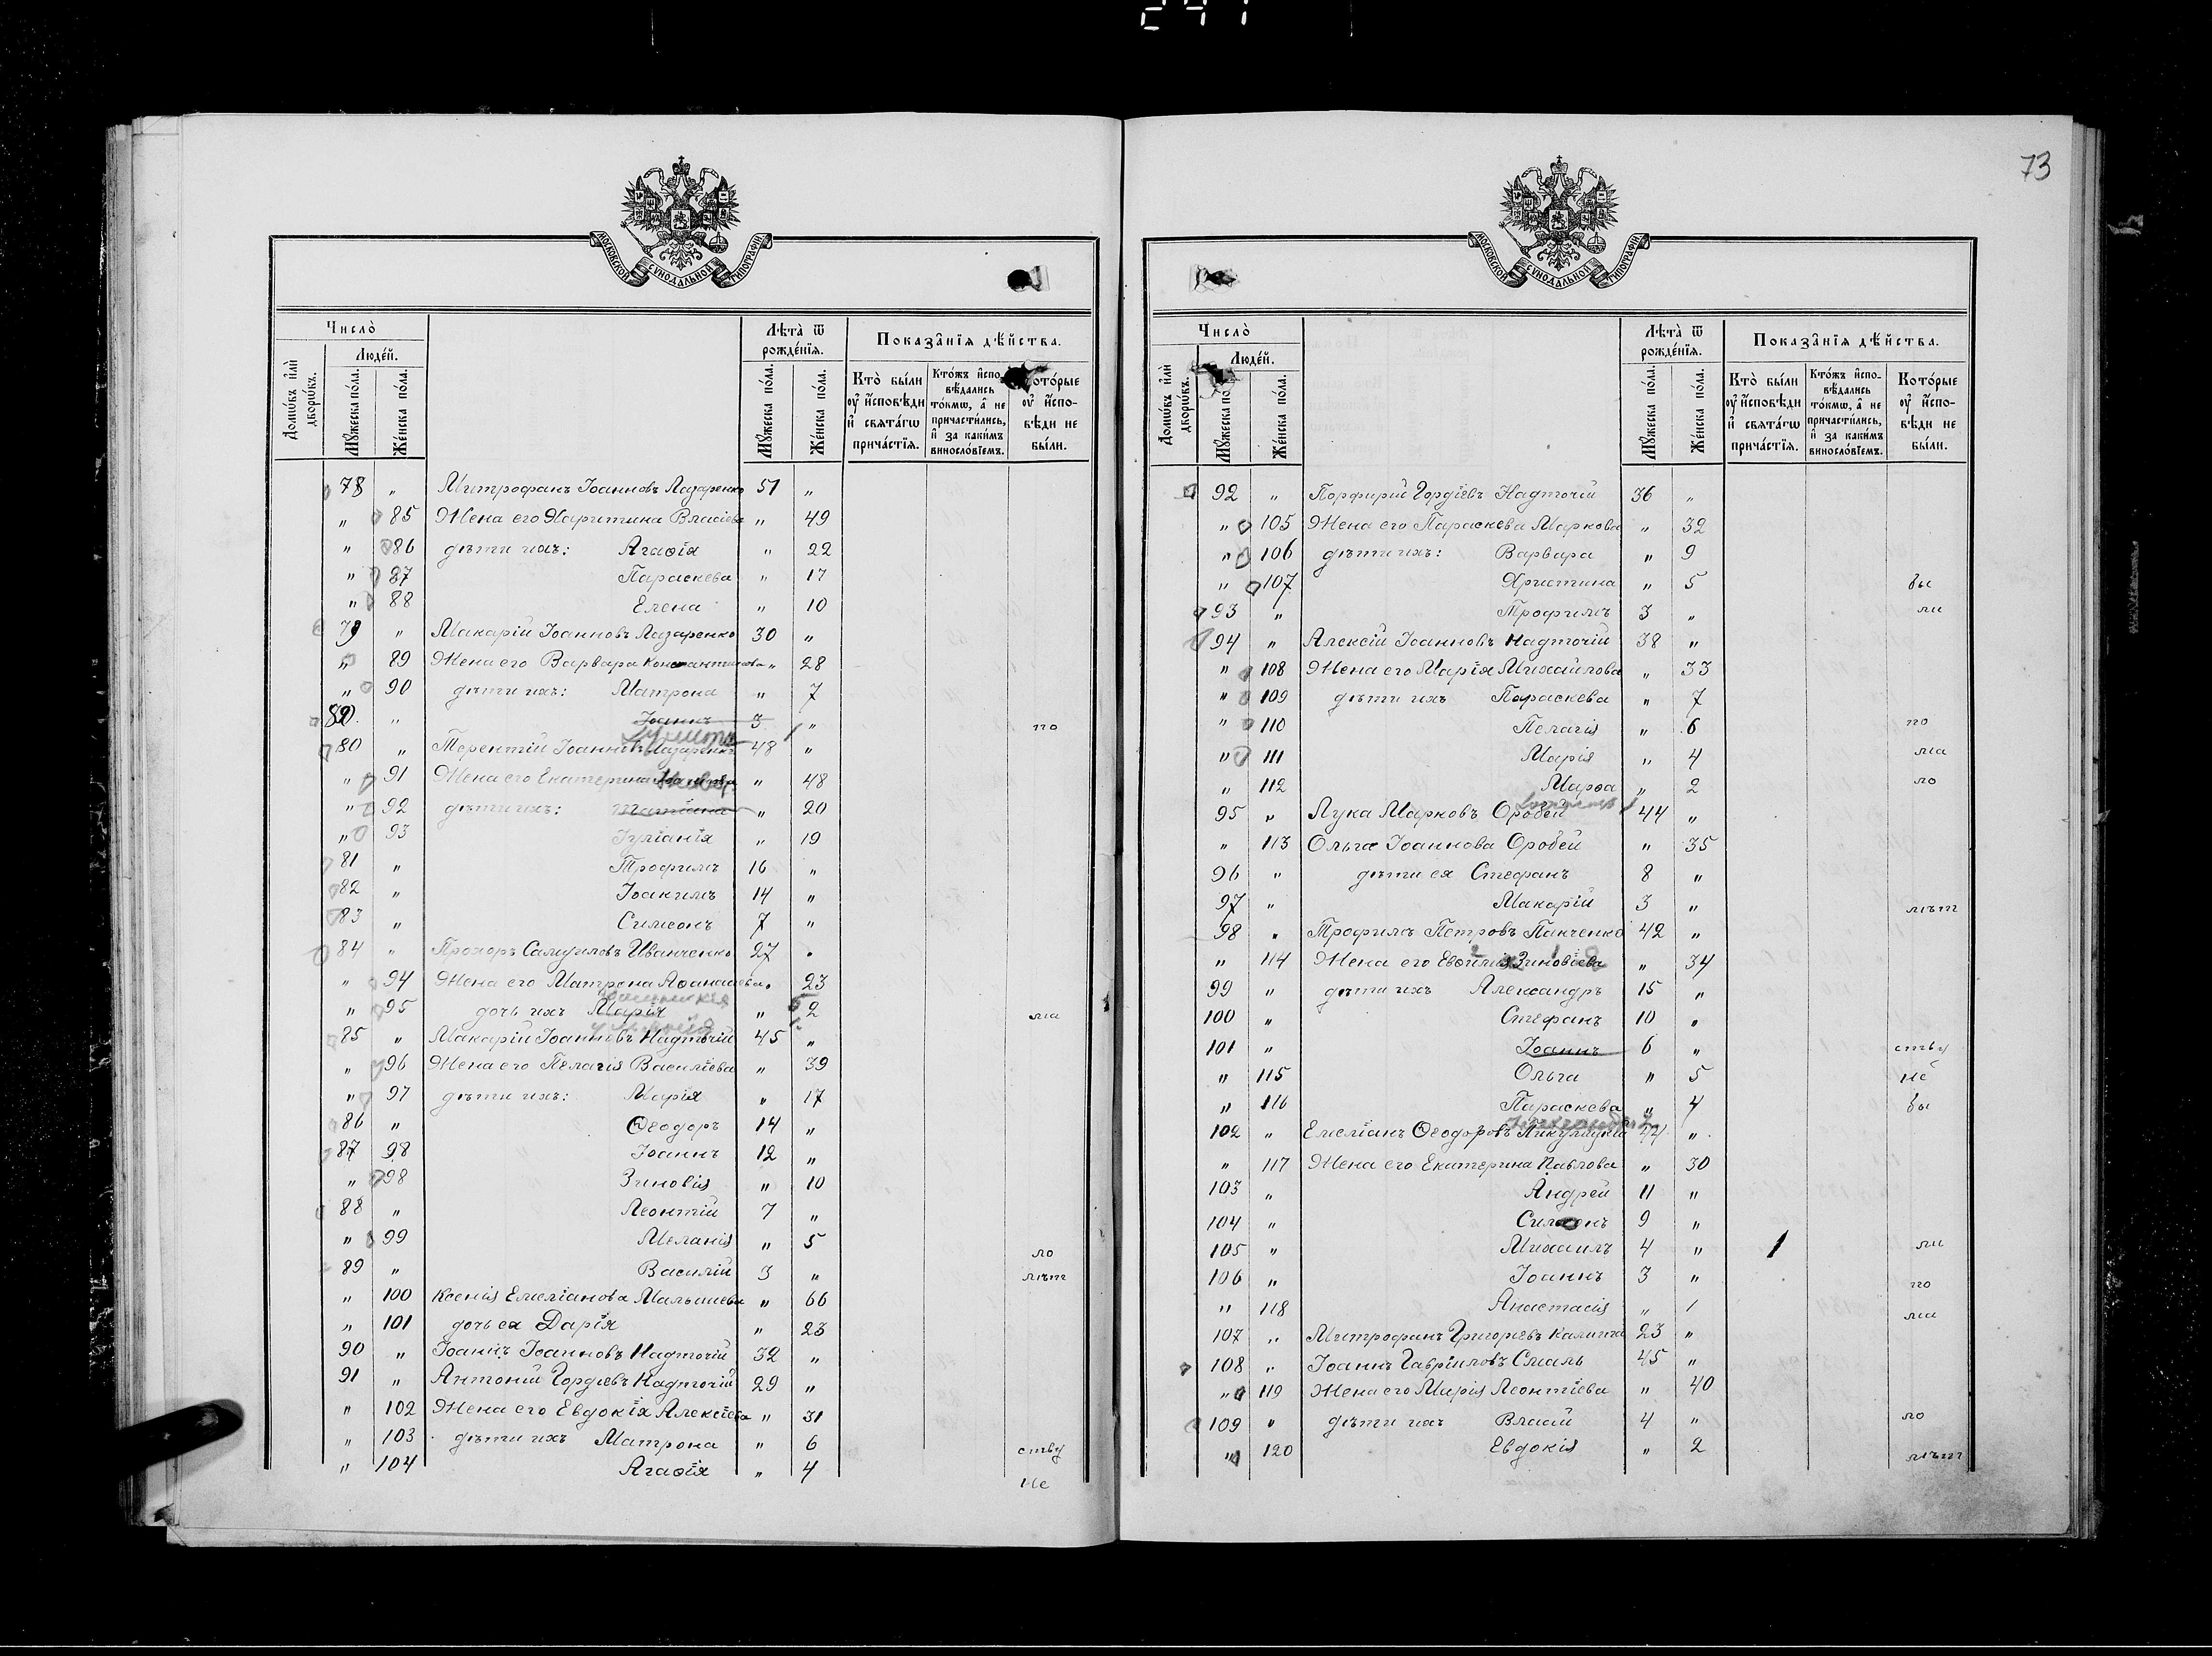 МОСКОВСКОЙ СѴНОДАЛЬНОЙ ТИПОГРАФІИ.
Число̀
Людей.
Домѡвъ и҆лѝ дворѡвъ.
Мꙋжеска по́ла.
Же́нска по́ла.
Лѣта̀ ѿ рожде́нїѧ.
Мꙋжеска по́ла.
Же́нска по́ла.
Показа̂нїѧ дѣ́йства.
Кто̀ бы́ли ᲂу҆ и҆сповѣди и҆ свѧта́гѡ прича́стїѧ.
Кто́жъ и҆сповѣ́дались то́кмѡ, а҆ не причасти́лись, и҆ за каки́мъ винословїемъ.
Кото́рые ᲂу҆ и҆споʹвѣди не бы́ли.
78 " Митрофанъ Іоанновъ Лазаренко 51 "
" 85 Жена его Харитина Власіева " 49
" 86 дѣти ихъ: Агаѳія " 22
" 87 Параскева " 17
" 88 Елена " 10
79 " Макарій Іоанновъ Лазаренко 30 "
" 89 Жена его Варвара Константинова " 28
" 90 дѣти ихъ: Матрона " 7
80 " Іоаннъ 3 " по
80 " Терентій Іоанновъ Лазаренко 48 "
" 91 Жена его Екатерина " 48
" 92 дѣти ихъ: Татіана " 20
" 93 Іуліанія " 19
81 " Трофимъ 16 "
82 " Іоакимъ 14 "
83 " Симеонъ 7 "
84 " Прохоръ Самуиловъ Иванченко 27 "
" 94 Жена его Матрона Аѳанасіева " 23
" 95 дочь ихъ Марія " 2 ма
85 " Макарій Іоанновъ Надточій 45 "
" 96 Жена его Пелагія Василіева " 39
" 97 дѣти ихъ: Марія " 17
86 " Ѳеодоръ 14 "
87 98 Іоаннъ 12 "
" 98 Зиновія " 10
88 " Леонтій 7 "
" 99 Меланія " 5 ло
89 " Василій 3 " лѣт
" 100 Ксенія Емеліанова Малышева " 66
" 101 дочь ея Дарія " 23
90 " Іоаннъ Іоанновъ Надточій 32 "
91 " Антоній Гордіевъ Надточій 29 "
" 102 Жена его Евдокія Алексіева " 31
" 103 дѣти ихъ Матрона " 6 ству
" 104 Агаѳія " 4 не
73
МОСКОВСКОЙ СѴНОДАЛЬНОЙ ТИПОГРАФІИ.
Число̀
Людей.
Домѡвъ и҆лѝ дворѡвъ.
Мꙋжеска по́ла.
Же́нска по́ла.
Лѣта̀ ѿ рожде́нїѧ.
Мꙋжеска по́ла.
Же́нска по́ла.
Показа̂нїѧ дѣ́йства.
Кто̀ бы́ли ᲂу҆ и҆сповѣди и҆ свѧта́гѡ прича́стїѧ.
Кто́жъ и҆сповѣ́дались то́кмѡ, а҆ не причасти́лись, и҆ за каки́мъ винословїемъ.
Кото́рые ᲂу҆ и҆споʹвѣди не бы́ли.
92 " Порфирій Гордіевъ Надточій 36 "
" 105 Жена его Параскева Маркова " 32
" 106 дѣти ихъ: Варвара " 9
" 107 Христина " 5 бы
93 " Трофимъ 3 " ли
94 " Алексій Іоанновъ Надточій 38 "
" 108 Жена его Марія Михайлова " 33
" 109 дѣти ихъ Параскева " 7
" 110 Пелагія " 6 по
" 111 Марія " 4 ма
" 112 Марѳа " 2 ло
95 " Лука Марковъ Оробей 44 "
" 113 Ольга Іоаннова Оробей " 35
96 " дѣти ея Стефанъ 8 "
97 " Макарій 3 " лѣт
98 " Трофимъ Петровъ Панченко 42 "
" 114 Жена его Евфимія Зиновіева " 34
99 " дѣти ихъ Александръ 15 "
100 " Стефанъ 10 "
101 " Іоаннъ 6 " ству
" 115 Ольга " 5 не
" 116 Параскева " 4 бы
102 " Емеліанъ Ѳеодоровъ 44 "
" 117 Жена его Екатерина Павлова " 30
103 " Андрей 11 "
104 " Симеонъ 9 "
105 " Михаилъ 4 " 1 ли
106 " Іоаннъ 3 " по
" 118 Анастасія " 1 ма
107 " Митрофанъ Григоріевъ Калита 23 "
108 " Іоаннъ Гавріиловъ Смаль 45 "
" 119 Жена его Марія Леонтіева " 40
109 " дѣти ихъ Власій 4 " ло
" 120 Евдокія " 2 лѣт